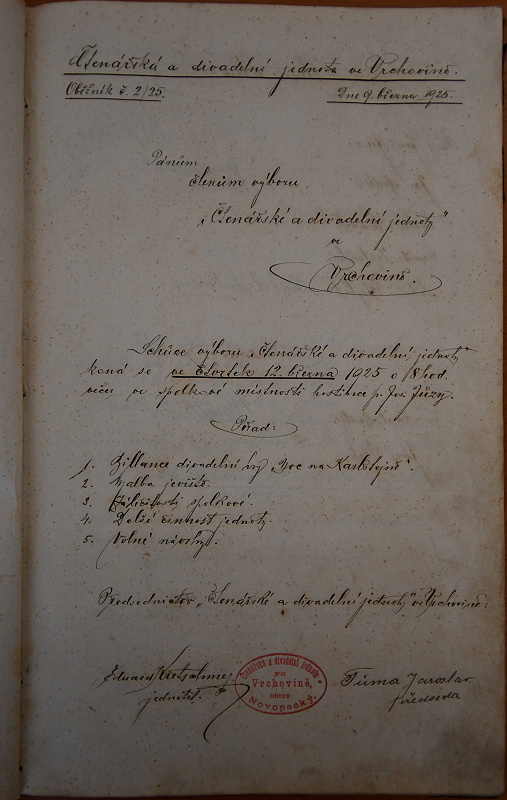 Čtenářská a divadelní jednota ve Vrchovině.
Oběžník č. 2/25.
Dne 9. března 1925.
Pánům
členům výboru
„Čtenářské a divadelní jednoty"
ve
Vrchovině.
Schůze výboru „Čtenářské a divadelní jednoty"
koná se ve čtvrtek 12. března 1925 o 8 hod.
večer ve spolkové místnosti hostince p. Jos. Jůzy.
Pořad:
1. Billance divadelní hry „Noc na Karlštejně".
2. Malba jeviště.
3. Záležitosti spolkové.
4. Další činnost jednoty.
5. Volné návrhy.
Předsednictvo „Čtenářské a divadelní jednoty" ve Vrchovině:
Eduard Kretschmer
jednatel.
Čtenářská a divadelní jednota
ve
Vrchovině,
okres
Novopacký.
Tůma Jaroslav
předseda